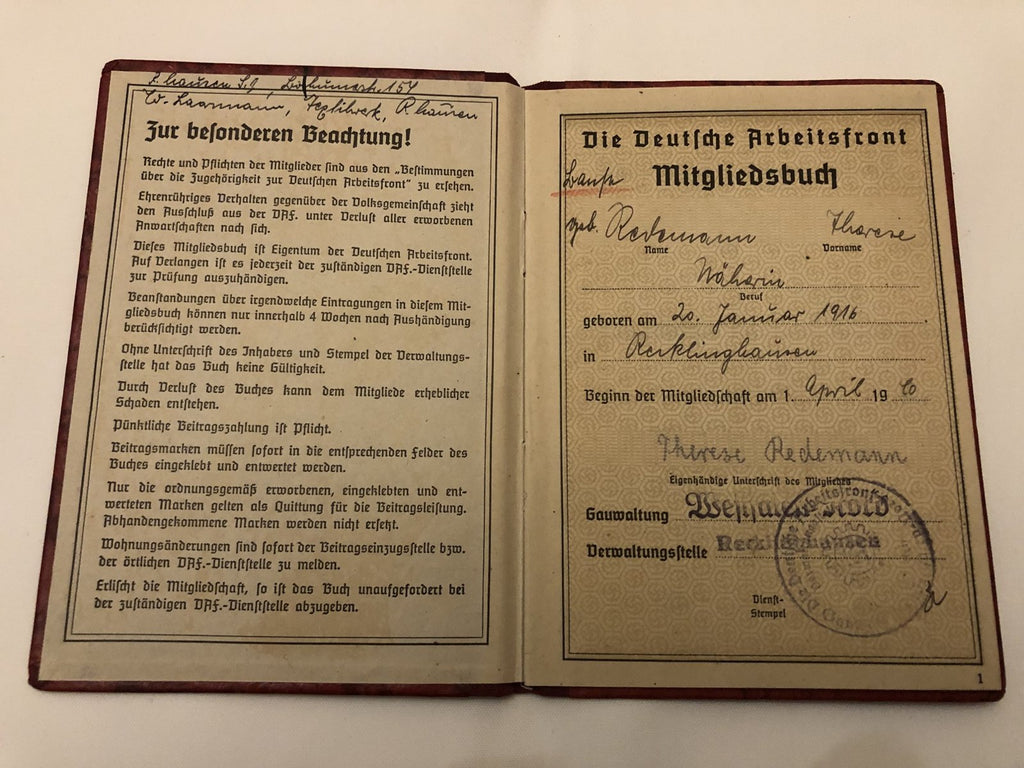 R. hausen S.9, Bochumerstr. 154
W. Laarmann, Textilwerk, R. hausen
Zur besonderen Beachtung!
Rechte und Pflichten der Mitglieder sind aus den „Bestimmungen
über die Zugehörigkeit zur Deutschen Arbeitsfront“ zu ersehen.
Ehrenrühriges Verhalten gegenüber der Volksgemeinschaft zieht
den Ausschluß aus der DAF. unter Verlust aller erworbenen
Anwartschaften nach sich.
Dieses Mitgliedsbuch ist Eigentum der Deutschen Arbeitsfront.
Auf Verlangen ist es jederzeit der zuständigen DAF.-Dienststelle
zur Prüfung auszuhändigen.
Beanstandungen über irgendwelche Eintragungen in diesem Mit-
gliedsbuch können nur innerhalb 4 Wochen nach Aushändigung
berücksichtigt werden.
Ohne Unterschrift des Inhabers und Stempel der Verwaltungs-
stelle hat das Buch keine Gültigkeit.
Durch Verlust des Buches kann dem Mitgliede erheblicher
Schaden entstehen.
Pünktliche Beitragszahlung ist Pflicht.
Beitragsmarken müssen sofort in die entsprechenden Felder des
Buches eingeklebt und entwertet werden.
Nur die ordnungsgemäß erworbenen, eingeklebten und ent-
werteten Marken gelten als Quittung für die Beitragsleistung.
Abhandengekommene Marken werden nicht ersetzt.
Wohnungsänderungen sind sofort der Beitragseinzugsstelle bzw.
der örtlichen DAF.-Dienststelle zu melden.
Erlischt die Mitgliedschaft, so ist das Buch unaufgefordert bei
der zuständigen DAF.-Dienststelle abzugeben.
Die Deutsche Arbeitsfront
Mitgliedsbuch
geb. Redemann Therese
Name Vorname
Näherin
Beruf
geboren am 20. Januar 1916
in Recklinghausen
Beginn der Mitgliedschaft am 1. April 19
Therese Redemann
Eigenhändige Unterschrift des Mitgliedes
Gauwaltung Westfalen-Nord
Verwaltungsstelle Recklinghausen
Dienst-
Stempel
1